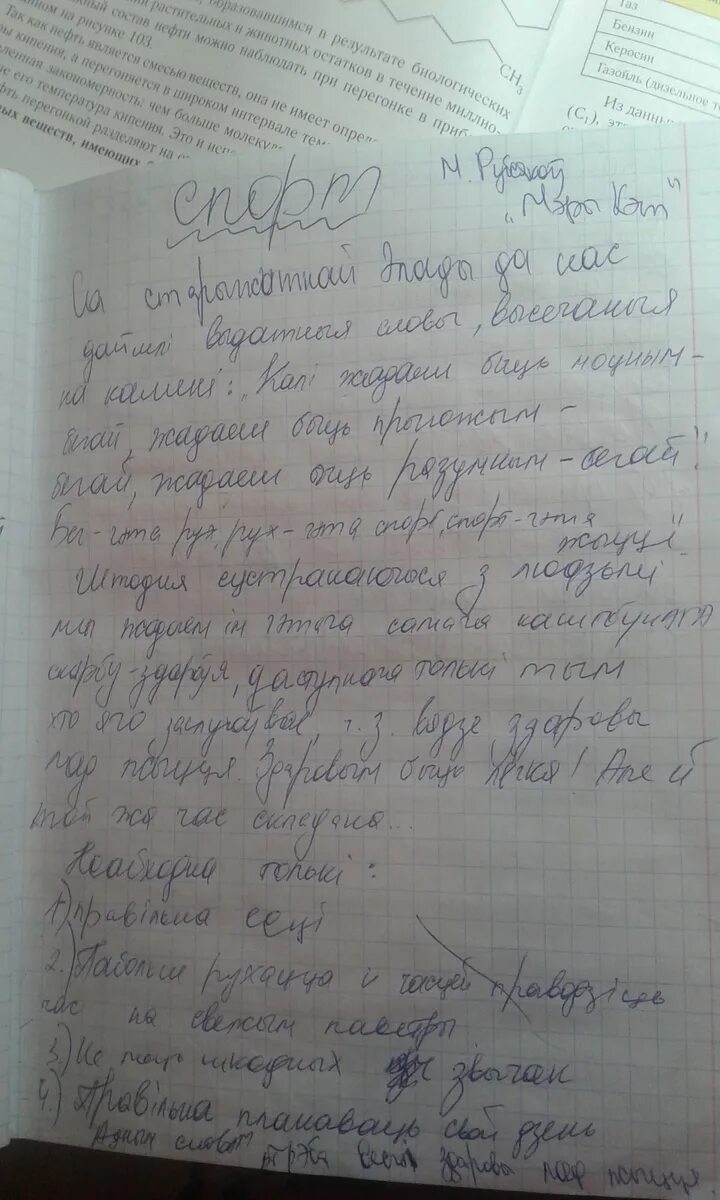 образовавшимся в результате биологических
растительных и животных остатков в течение миллио-
состав нефти можно наблюдать при перегонке в приб
на рисунке 103.
Так как нефть является смесью веществ, она не имеет опред
кипения, а перегоняется в широком интервале тем
закономерность: чем больше молеку
его температура кипения. Это и исп
перегонкой разделяют на
веществ, имеющих
CH3
Газ
Бензин
Керосин
Газойль (дизельное т
Из данны
(C₁), эт
спорт
М. Рубсякой
„Мэры Кэт"
Са старыжатнай Элады да нас
дайшлі выдатныя словы, высечаныя
на камяні: „Калі жадаеш быць моцным –
бегай, жадаеш быць прыгожым –
бегай, жадаеш быць разумным – бегай".
Бег – гэта рух, рух – гэта спорт, спорт – гэта
жыццё".
Штодня сустракаючыся з людзьмі
мы жадаем ім гэтага самага каштоўнага
скарбу – здароўя, даступнага толькі тым
хто яго заслугоўвае, г.з. вядзе здаровы
лад жыцця. Здаровым быць лёгка! Але й
той жа час складана...
Неабходна толькі:
1) правільна есці
2.) Паболш рухацца и часцей праводзіць
час на свежым паветры
3.) Не мець шкодных звычак
4.) Правільна планаваць свой дзень
Адным словам трэба весці здаровы лад жыцця